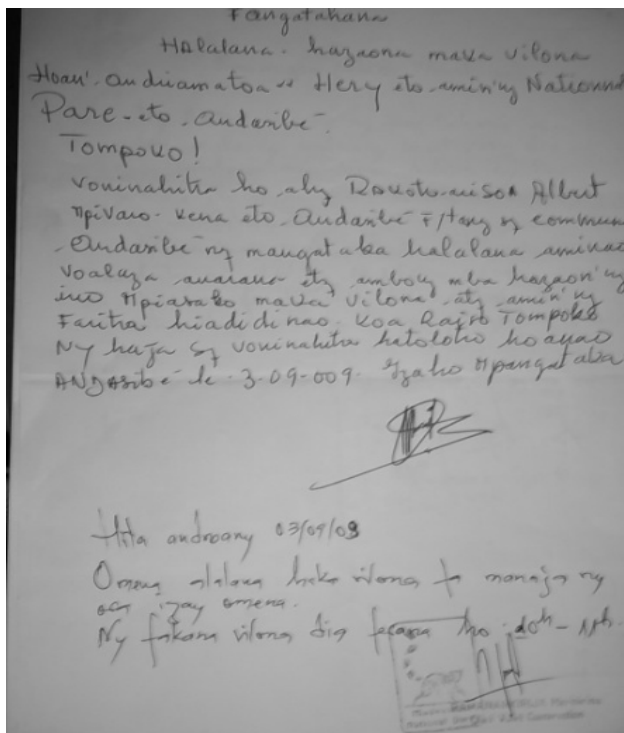 Fangatahana
Halalana. hazaona maka vilona
Hoan'. andriamatoa Hery eto amin'ny National
Parc - eto. andasibe.
Tompoko!
voninahitra ho ahy Rakotonison Albert
Mpivaro-kena eto. Andasibe F/tany ny commun
Andasibe ny mangataka halalana aminao
voalaza anarana etz ambony mba hazaon'ny
ireo Mpiasako maka vilona aty amin'ny
Faritra hiadidinao. koa Raiso Tompoko
Ny haja sy voninahitra hatoloko hoanao
ANDASIBE le 3-09-009. Izaho Mpangataka
Hita androany 03/09/09
Omena alalana haka vilona fa manaja ny
izay omena.
Ny fakana vilona dia ho 10h -